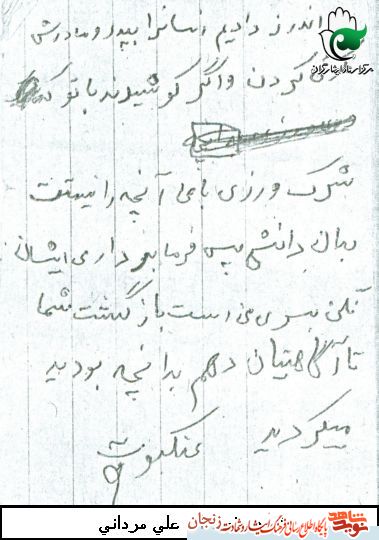 اندرز دادیم انسانرا بپدر و مادرش
کردن و اگر کوشیدند با تو که
شرک ورزی با من آنچه را نیستت
بدان دانشی پس فرمانبرداری ایشان
نکن بسوی من است بازگشت شما
تا آگاهیتان دهم بدانچه بودید
میکردید عنکبوت
نوید شاهد
پایگاه اطلاع رسانی فرهنگ ایثار و شهادت زنجان
علي مرداني